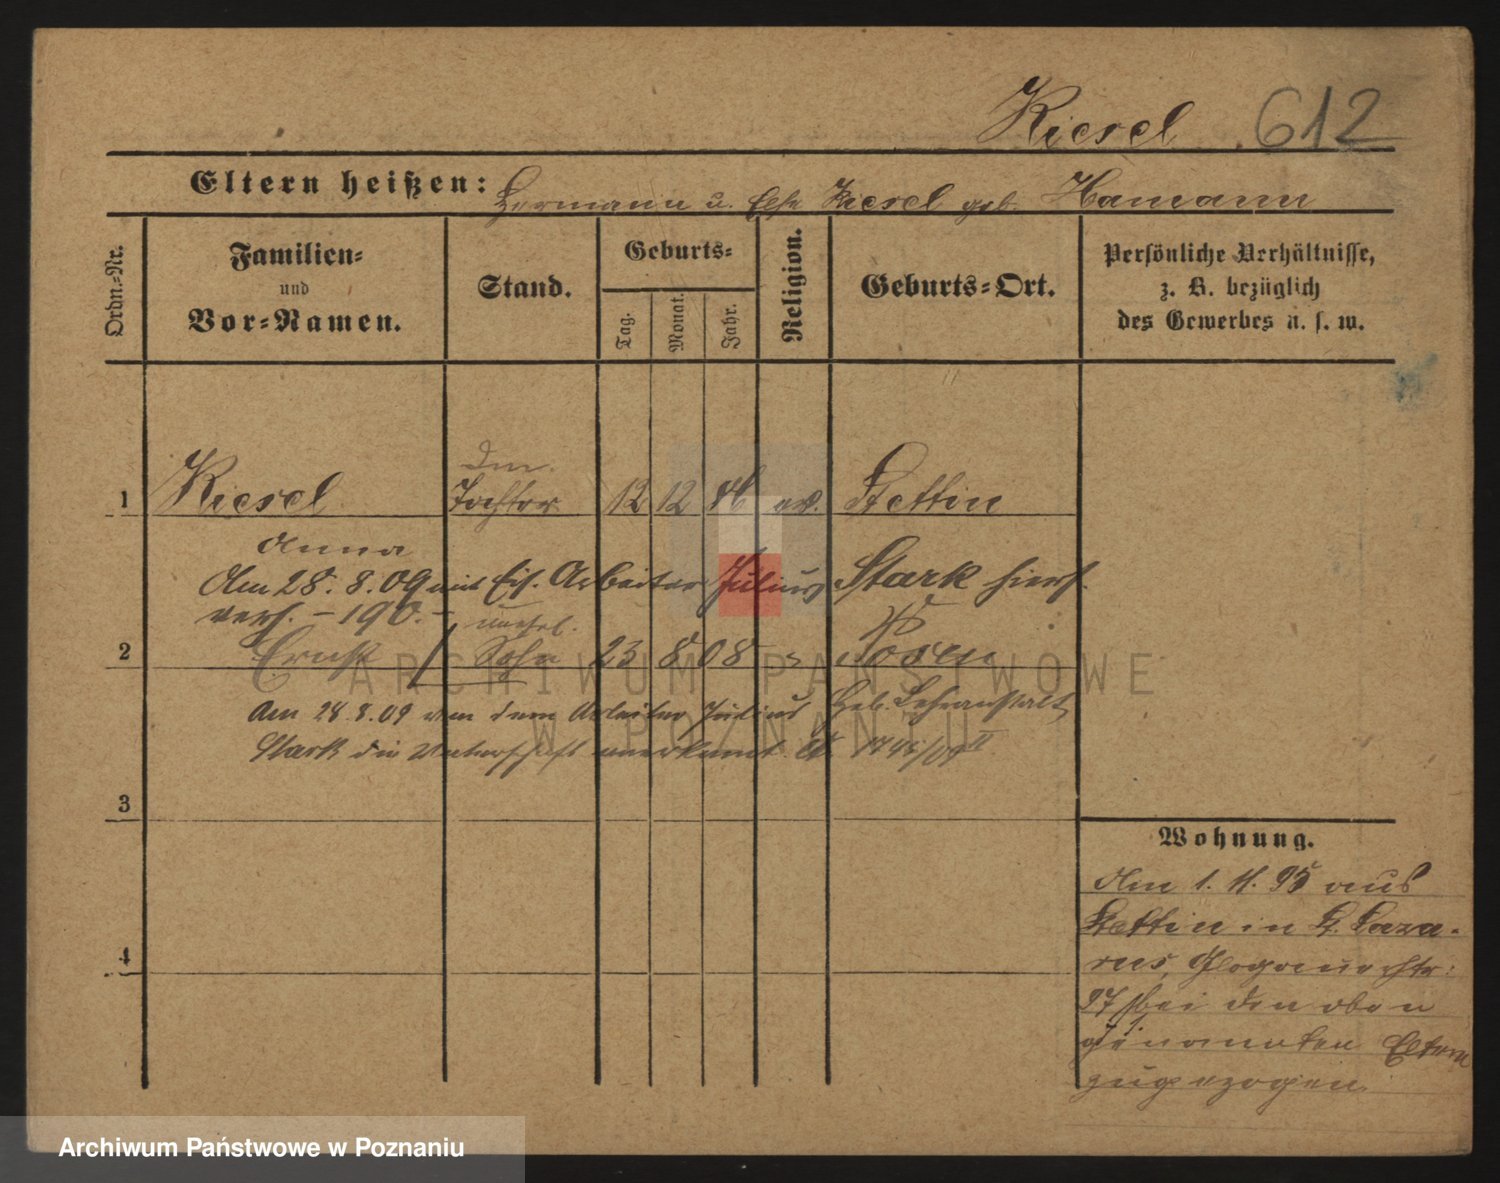 Riesel 612
Eltern heißen: Hermann u. Else Riesel geb. Hamann
Ordn.-Nr.
Familien-
und
Vor-Namen.
Stand.
Geburts-
Tag.
Monat.
Jahr.
Religion.
Geburts-Ort.
Persönliche Verhältnisse,
z. B. bezüglich
des Gewerbes u. s. w.
1 Riesel Tochter 12 12 86 ev. Stettin
Anna
Am 28. 8. 09 mit Eis. Arbeiter Julius Stark hiers.
verh. - 190. -
unehel.
2 Ernst Sohn 23 8 08 Posen
Am 28. 8. 09 von dem Arbeiter Julius Heb. Lehranstalt
Stark die Vaterschaft anerkannt.
3
4
Wohnung.
Am 1. 11. 95 aus
Stettin in St. Laza-
rus, Glogauerstr:
97 bei den oben
genannten Eltern
zugezogen.
ARCHIWUM PAŃSTWOWE
W POZNANIU
Archiwum Państwowe w Poznaniu